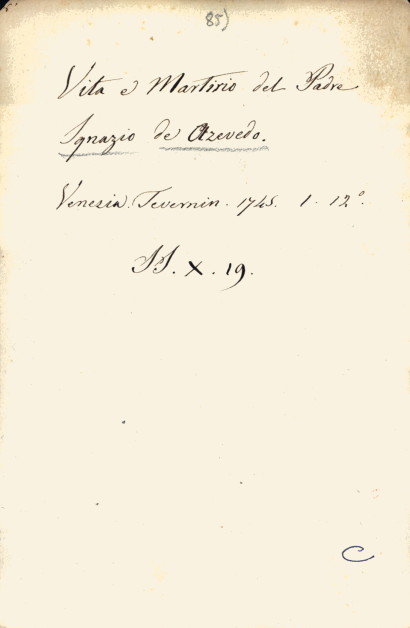 85)
Vita e Martirio del Padre
Ignazio de Azevedo.
Venezia. Tevernin. 1745. 1. 12°.
II. X. 19.
C